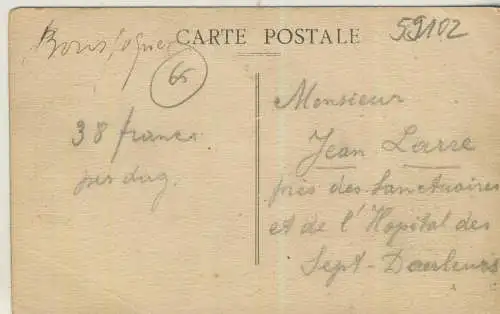 CARTE POSTALE
59102
65
38 francs
Monsieur
Jean Larre
près des Sanctuaires
et de l'Hopital des
Sept-Douleurs